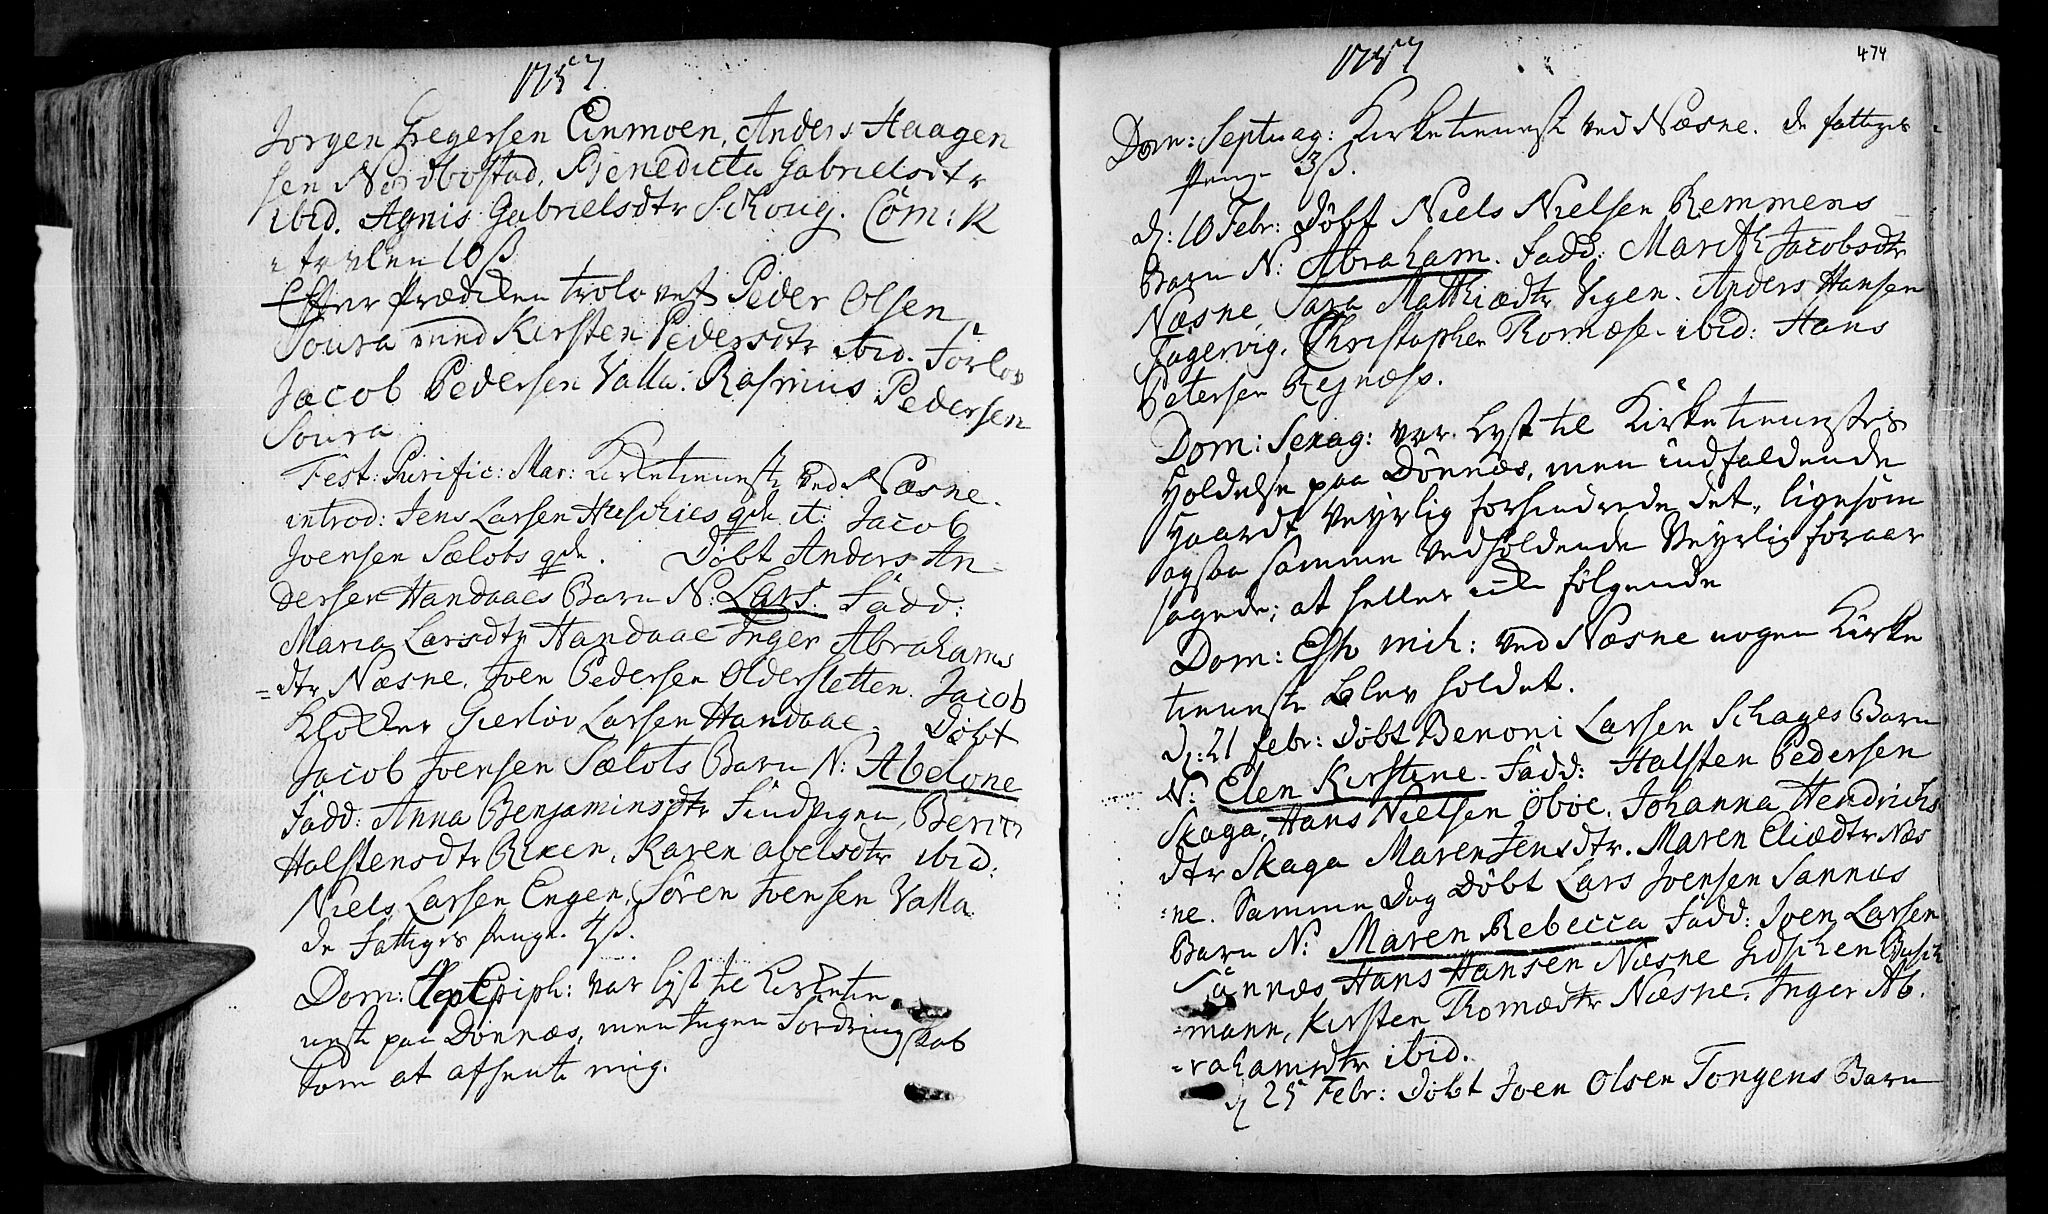 1757
Jorgen Gregersen Einmoen, Anders Haagen
sen Nordbostad, Benedicta Gabrielsdtr
ibid. Agnis Gabrielsdtr Schoug. Com: 12
10 ß
Efter Prædiken trolovet Peder Olsen
Soura med Kirsten Pedersdtr ibid. Forlov
Jacob Pedersen Valla: Rasmus Pedersen
Soura
Fest: Purific: Mar: Kirketieniste ved Næsne.
introd: Jens Larsen Huschies qde it: Jacob
Joensen Sælots qde. Døbt Anders An-
dersen Handaaes Barn N: Lars. Fadd:
Maria Larsdtr Handaae Inger Abrahams
=dtr Næsne, Joen Pedersen Oldersletten. Jacob
Klocker Gierlov Larsen Handaae. Døbt
Jacob Joensen Sælots Barn N: Abelone
Fadd: Anna Benjaminsdtr Berit
Halstensdtr Karen Abelsdtr ibid:
Niels Larsen Engen, Sören Joensen Valla
de Fattiges Penge 4ß.
Dom: Epiph: var lyst til Kirketie
niste paa Dönnæs, men ingen Fordring skab
kom at afhente mig.
1757
474
Dom: Septuag: Kirketieniste ved Næsne. de fattiges
Penge 3ß.
d: 10 Febr: Døbt Niels Nielsen Remmens
Barn N: Abraham. Fadd: Marith Jacobsdtr
Næsne, Sara Matthiædtr Vigen. Anders Hansen
Fagervig, Christopher Thomæsen ibid: Hans
Petersen Rejnæss.
Dom: Sexag: var Lyst til Kirketienestes
Holdelse paa Dönnæs, men indfaldende
Haardt Veyrlig forhindrede det, ligesom
ogsaa samme vedholdende Veyrlig foraar
sagede, at heller ide følgende
Dom: Esto mih: ved Næsne nogen Kirke
tieneste blev holdet.
d: 21 febr: Døbt Benoni Larsen Schages Barn
N: Elen Kirstine. Fadd: Halsten Pedersen
Skaga, Hans Nielsen Öböe. Johanna Hendrichs
dtr Skaga Maren Jensdtr. Maren Eliædtr Næs
=ne. Samme Dag Døbt Lars Joensen Sannæs
Barn N: Maren Rebecca Fadd: Joen Larsen
Sannæs Hans Hansen Næsne
=mann, Kirsten Thomædtr Næsne. Inger Ab.
=rahamsdtr ibid.
d 25 Febr: Døbt Joen Olsen Tongens Barn